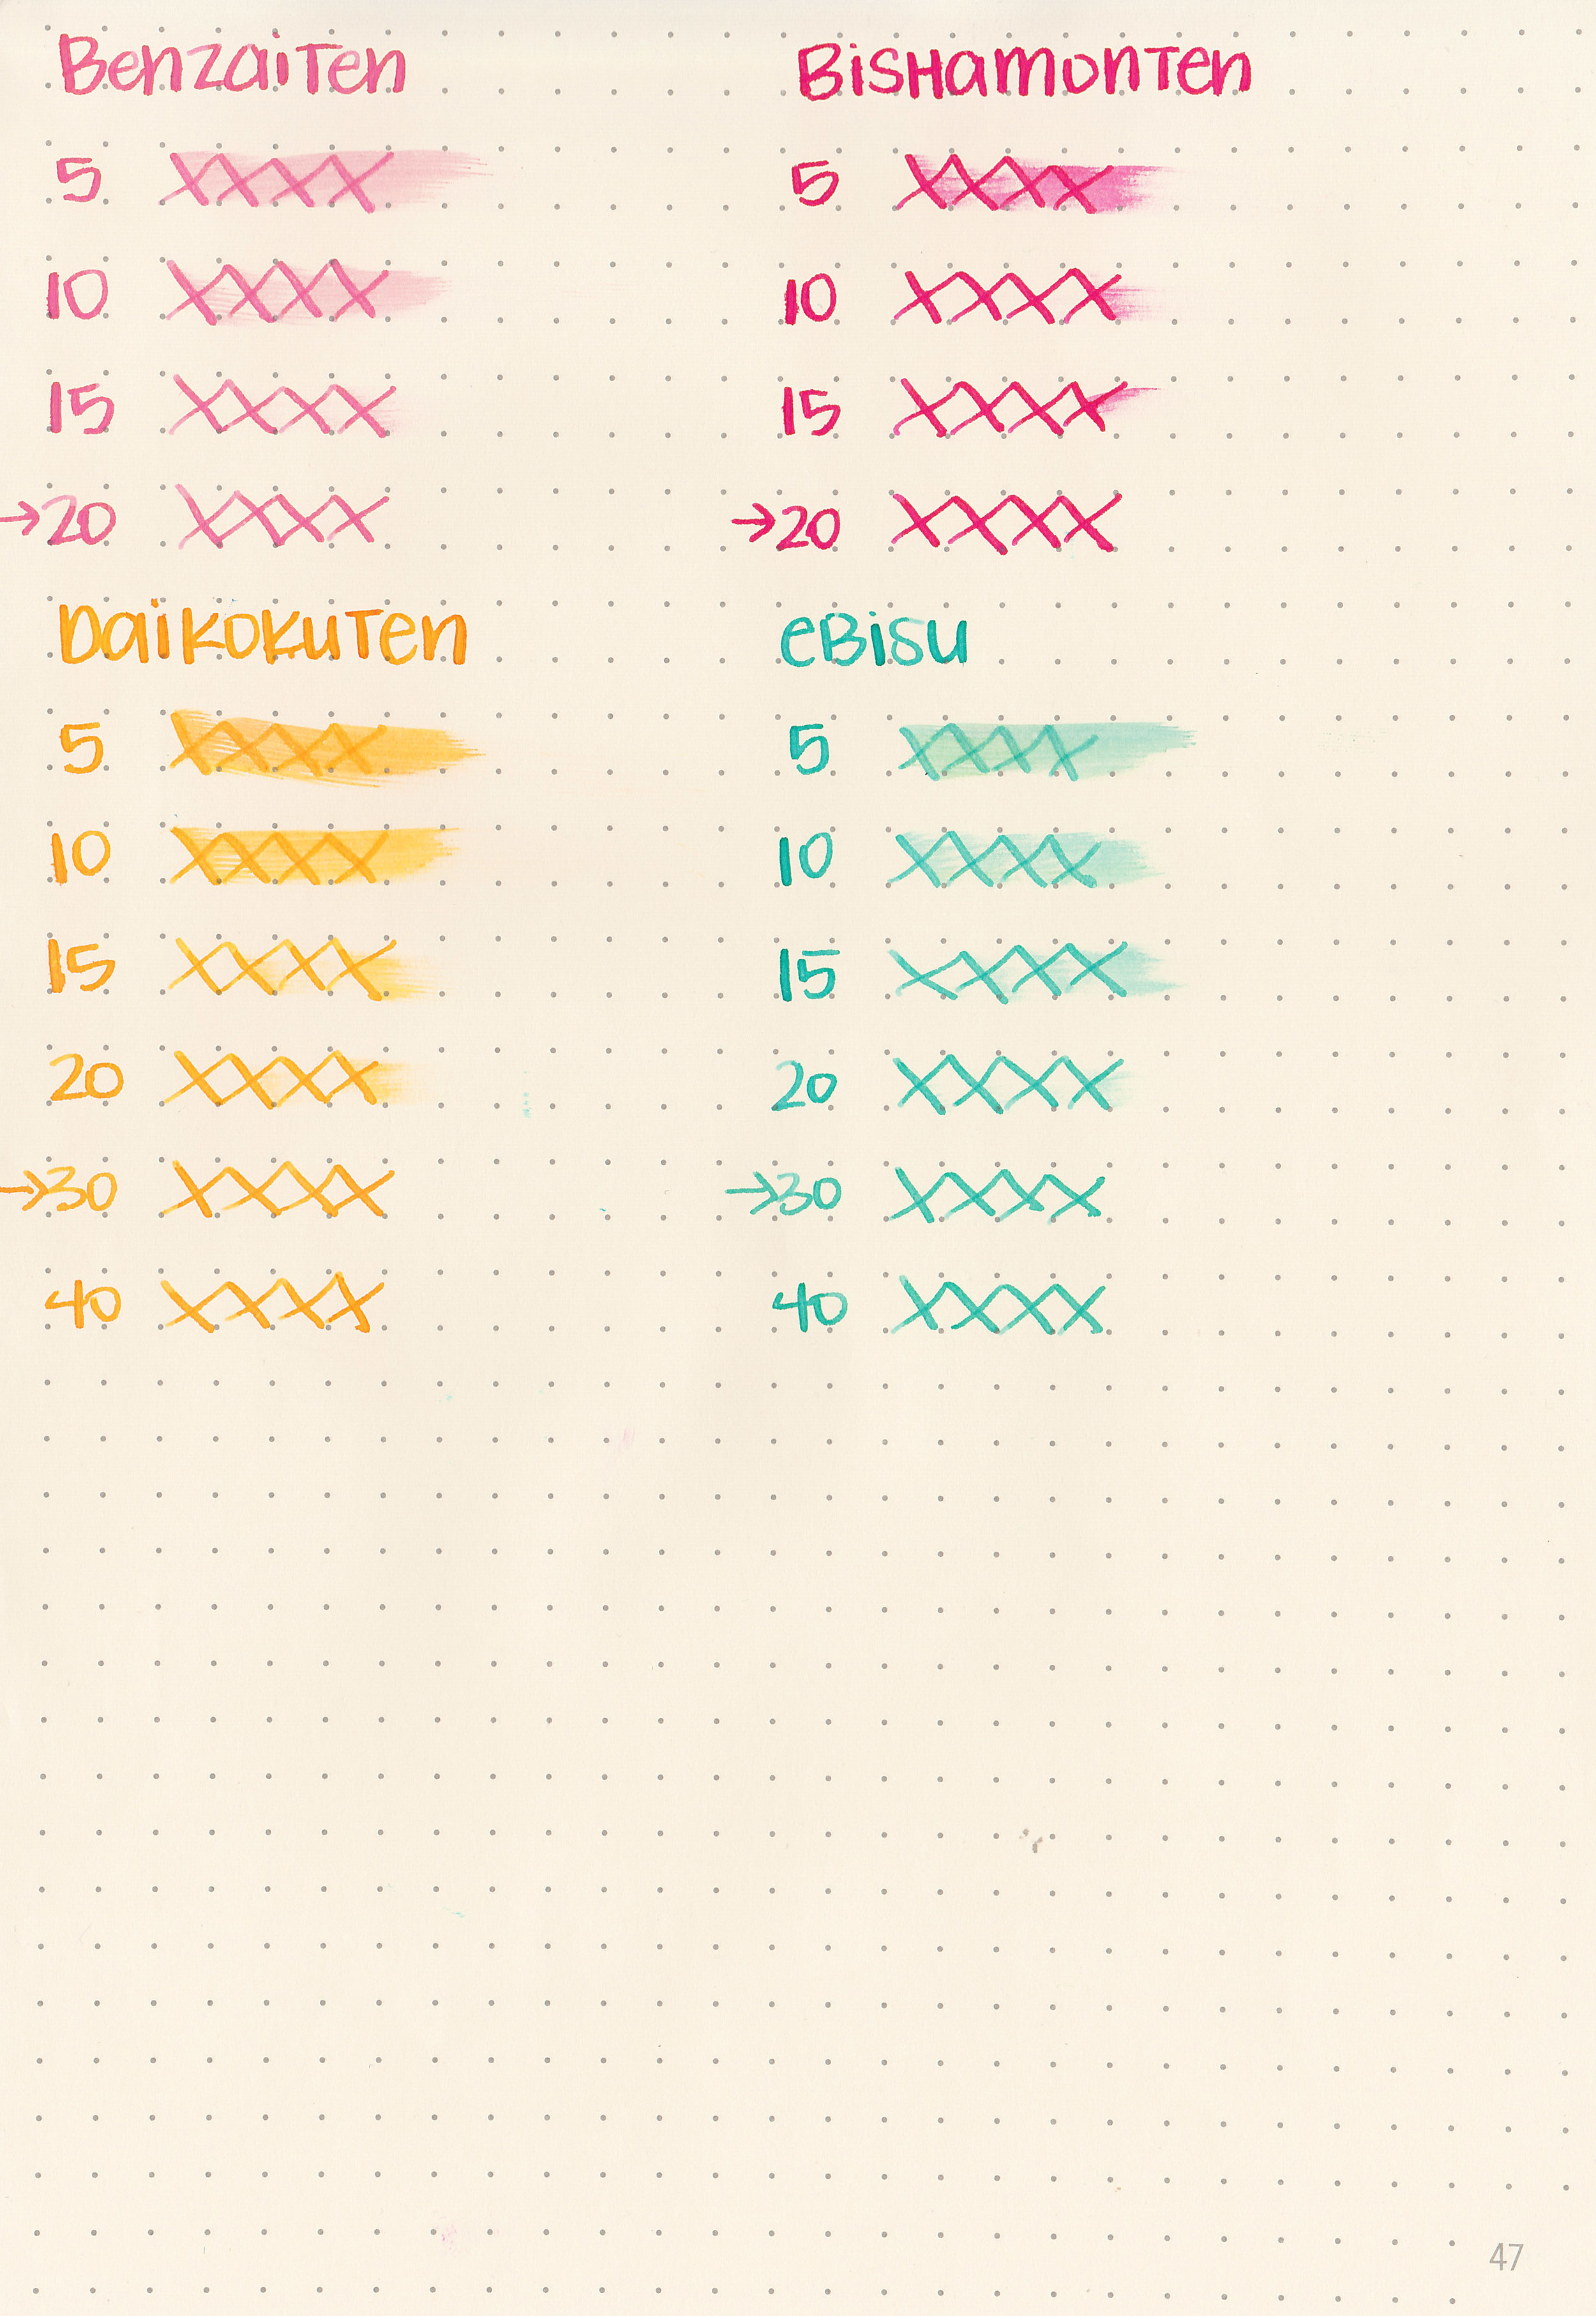 Benzaiten
5 XXXX
10 XXXX
15 XXXX
→20 XXXX
Bishamonten
5 XXXX
10 XXXX
15 XXXX
→20 XXXX
Daikokuten
5 XXXX
10 XXXX
15 XXXX
20 XXXX
→30 XXXX
40 XXXX
eBisu
5 XXXX
10 XXXX
15 XXXX
20 XXXX
→30 XXXX
40 XXXX
47